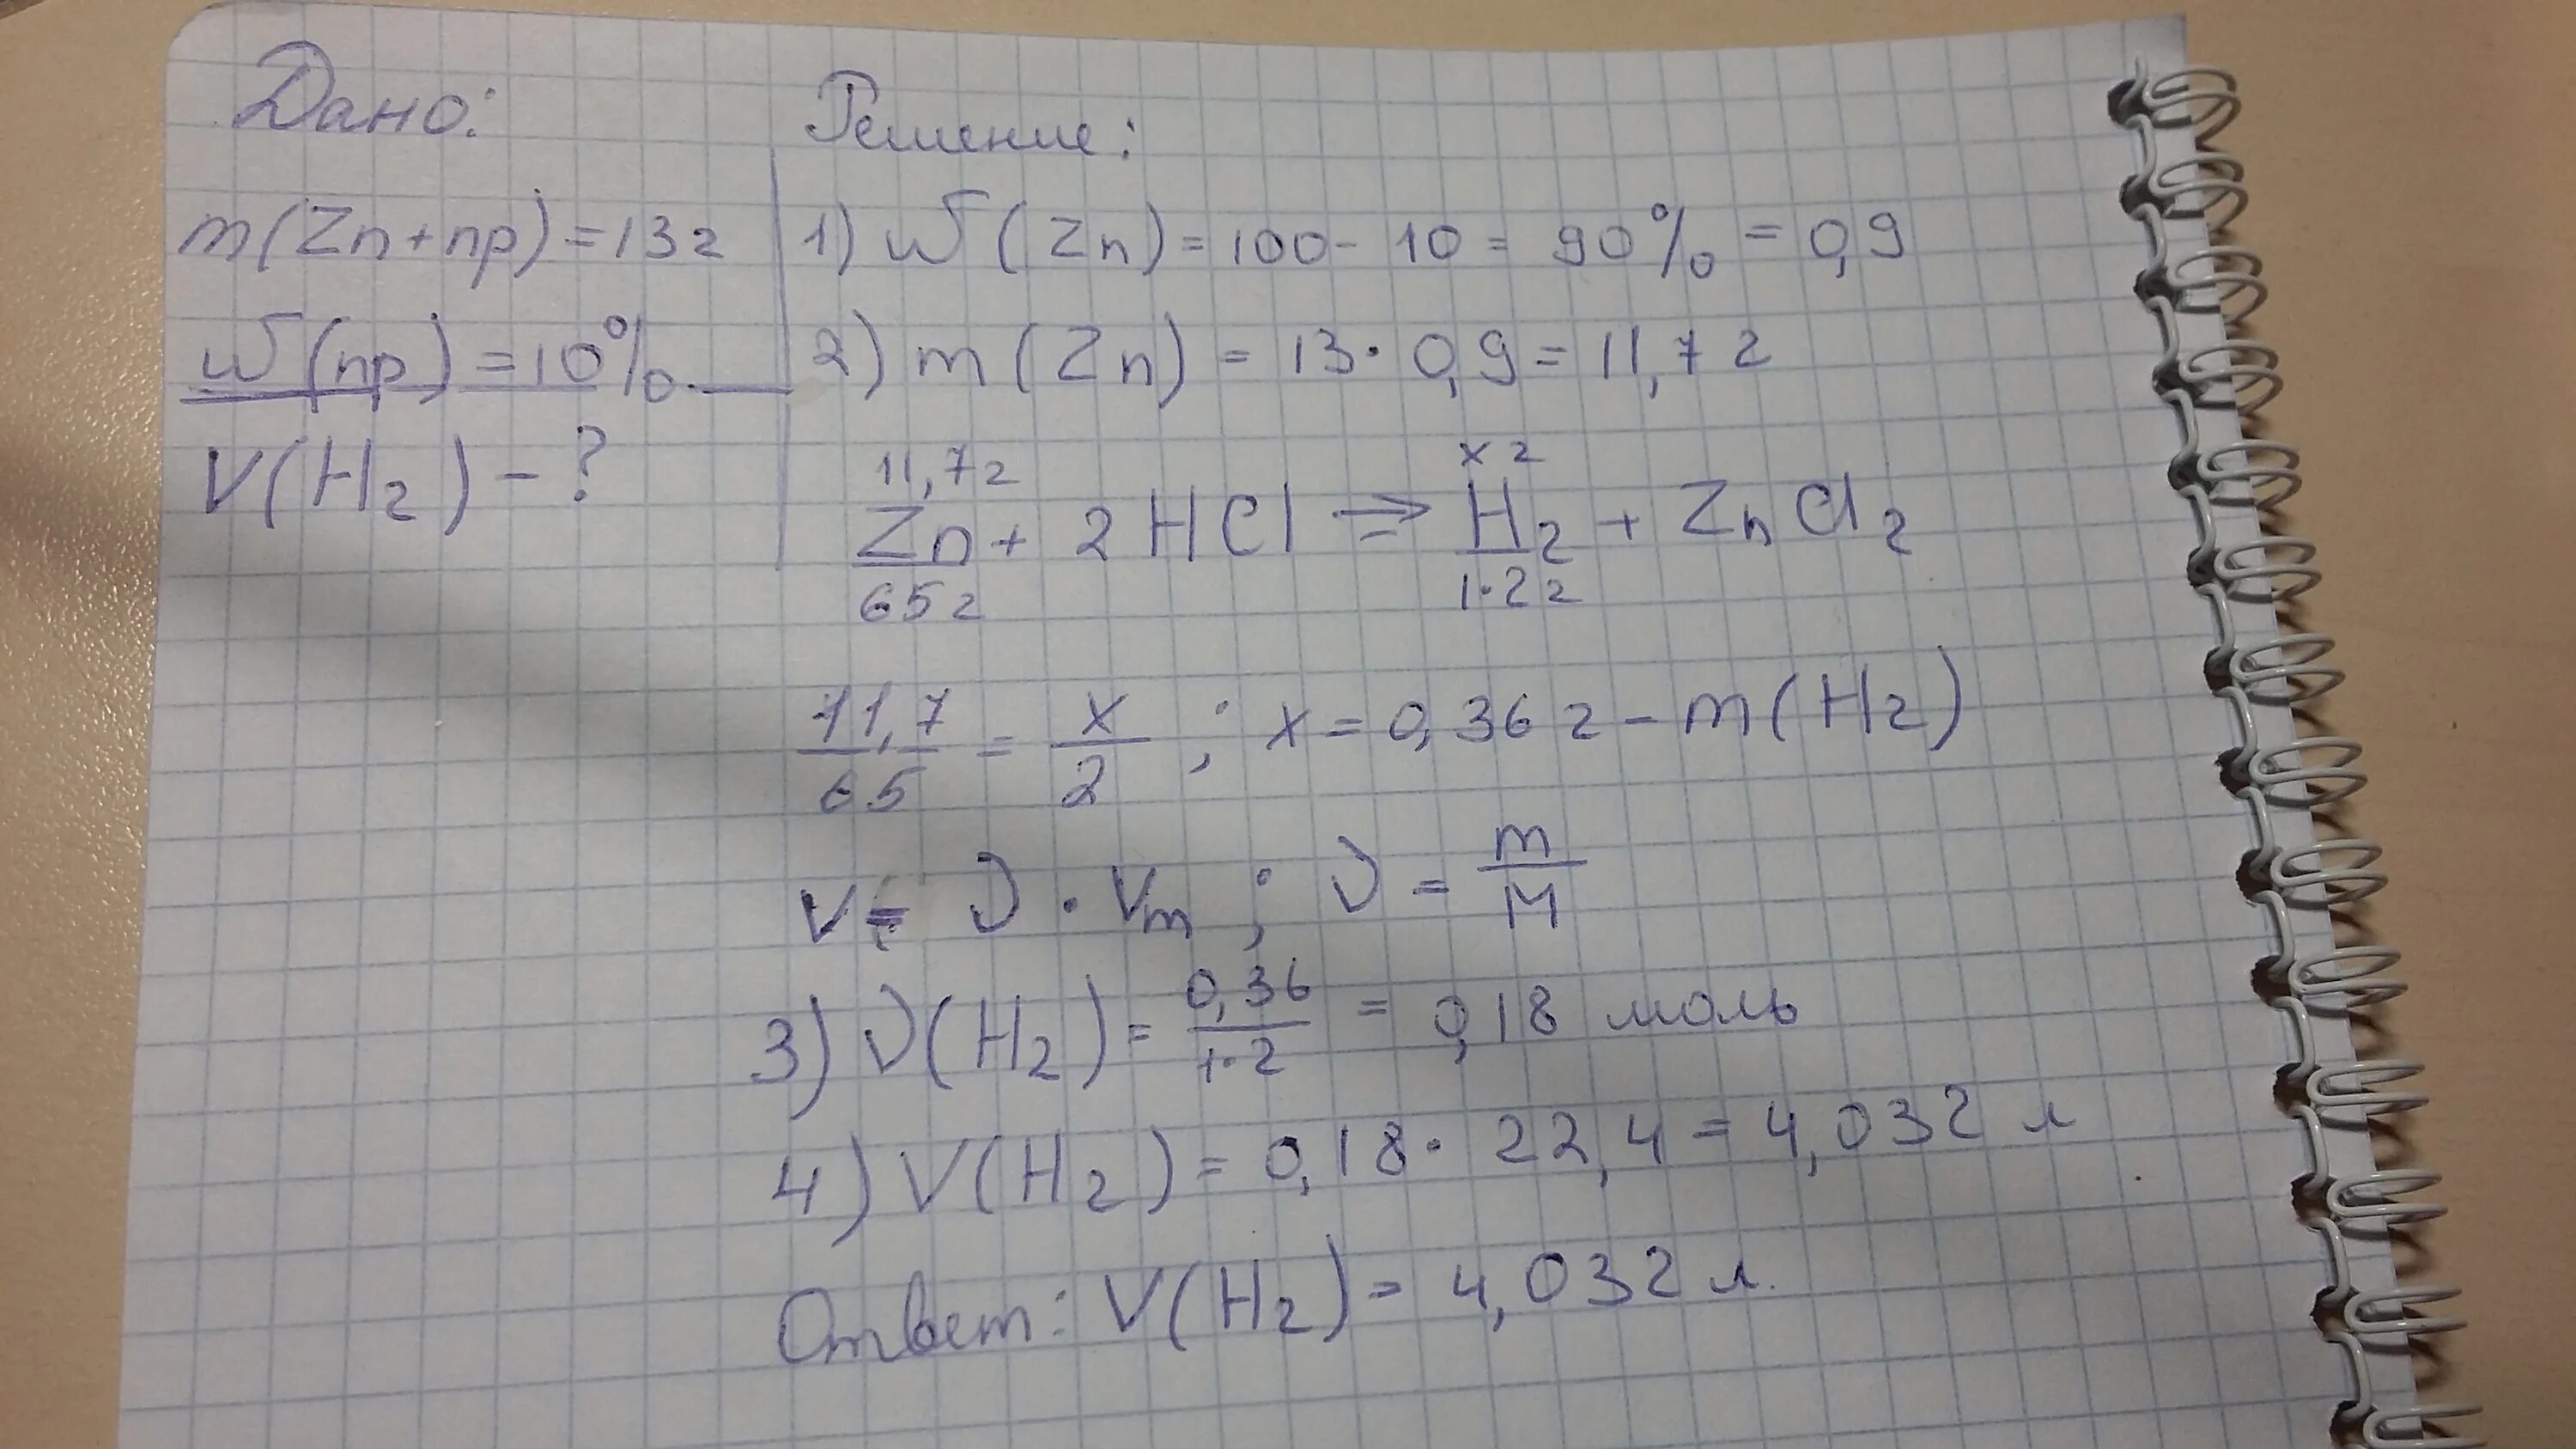 Дано:
m(Zn+пр)=13г
ω(пр)=10%
V(H₂)-?
Решение:
1) ω(Zn)=100-10=90%=0,9
2) m(Zn)=13·0,9=11,7г
11,7г xг
Zn+2HCl⇒H₂+ZnCl₂
65г 1·2г
11,7/65=x/2; x=0,36г-m(H₂)
V=ν·Vm; ν=m/M
3) ν(H₂)=0,36/1·2=0,18 моль
4) V(H₂)=0,18·22,4=4,032 л
Ответ: V(H₂)=4,032 л.